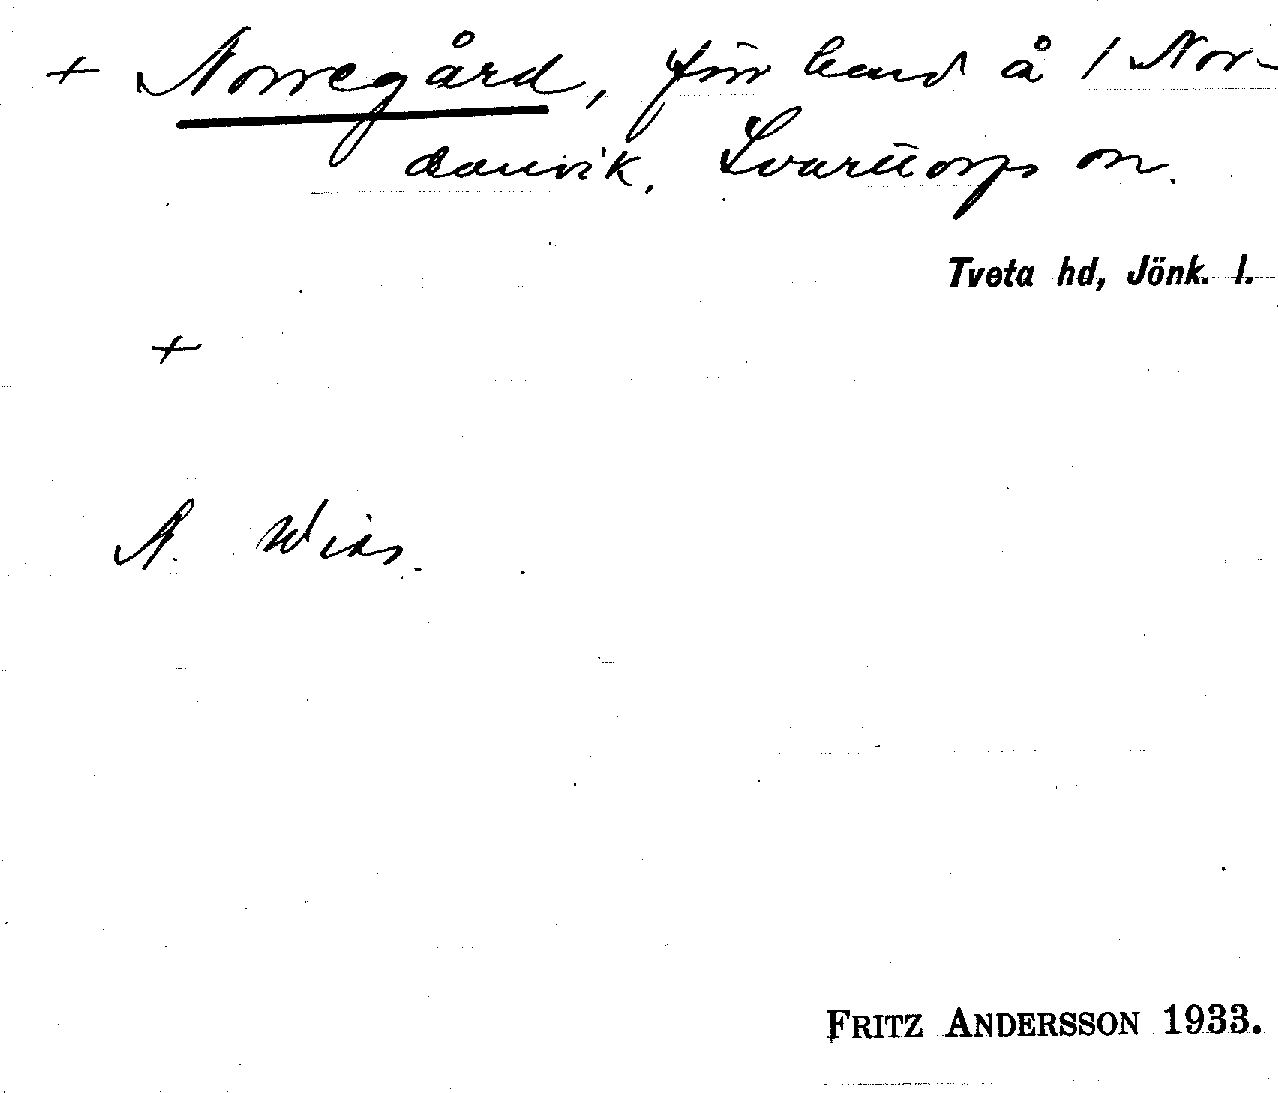 + Norregård, förr benä å 1 Nor-
danvik, Svarttorps sn.
Tveta hd, Jönk. l.
+
N. Wiss.
FRITZ ANDERSSON 1933.